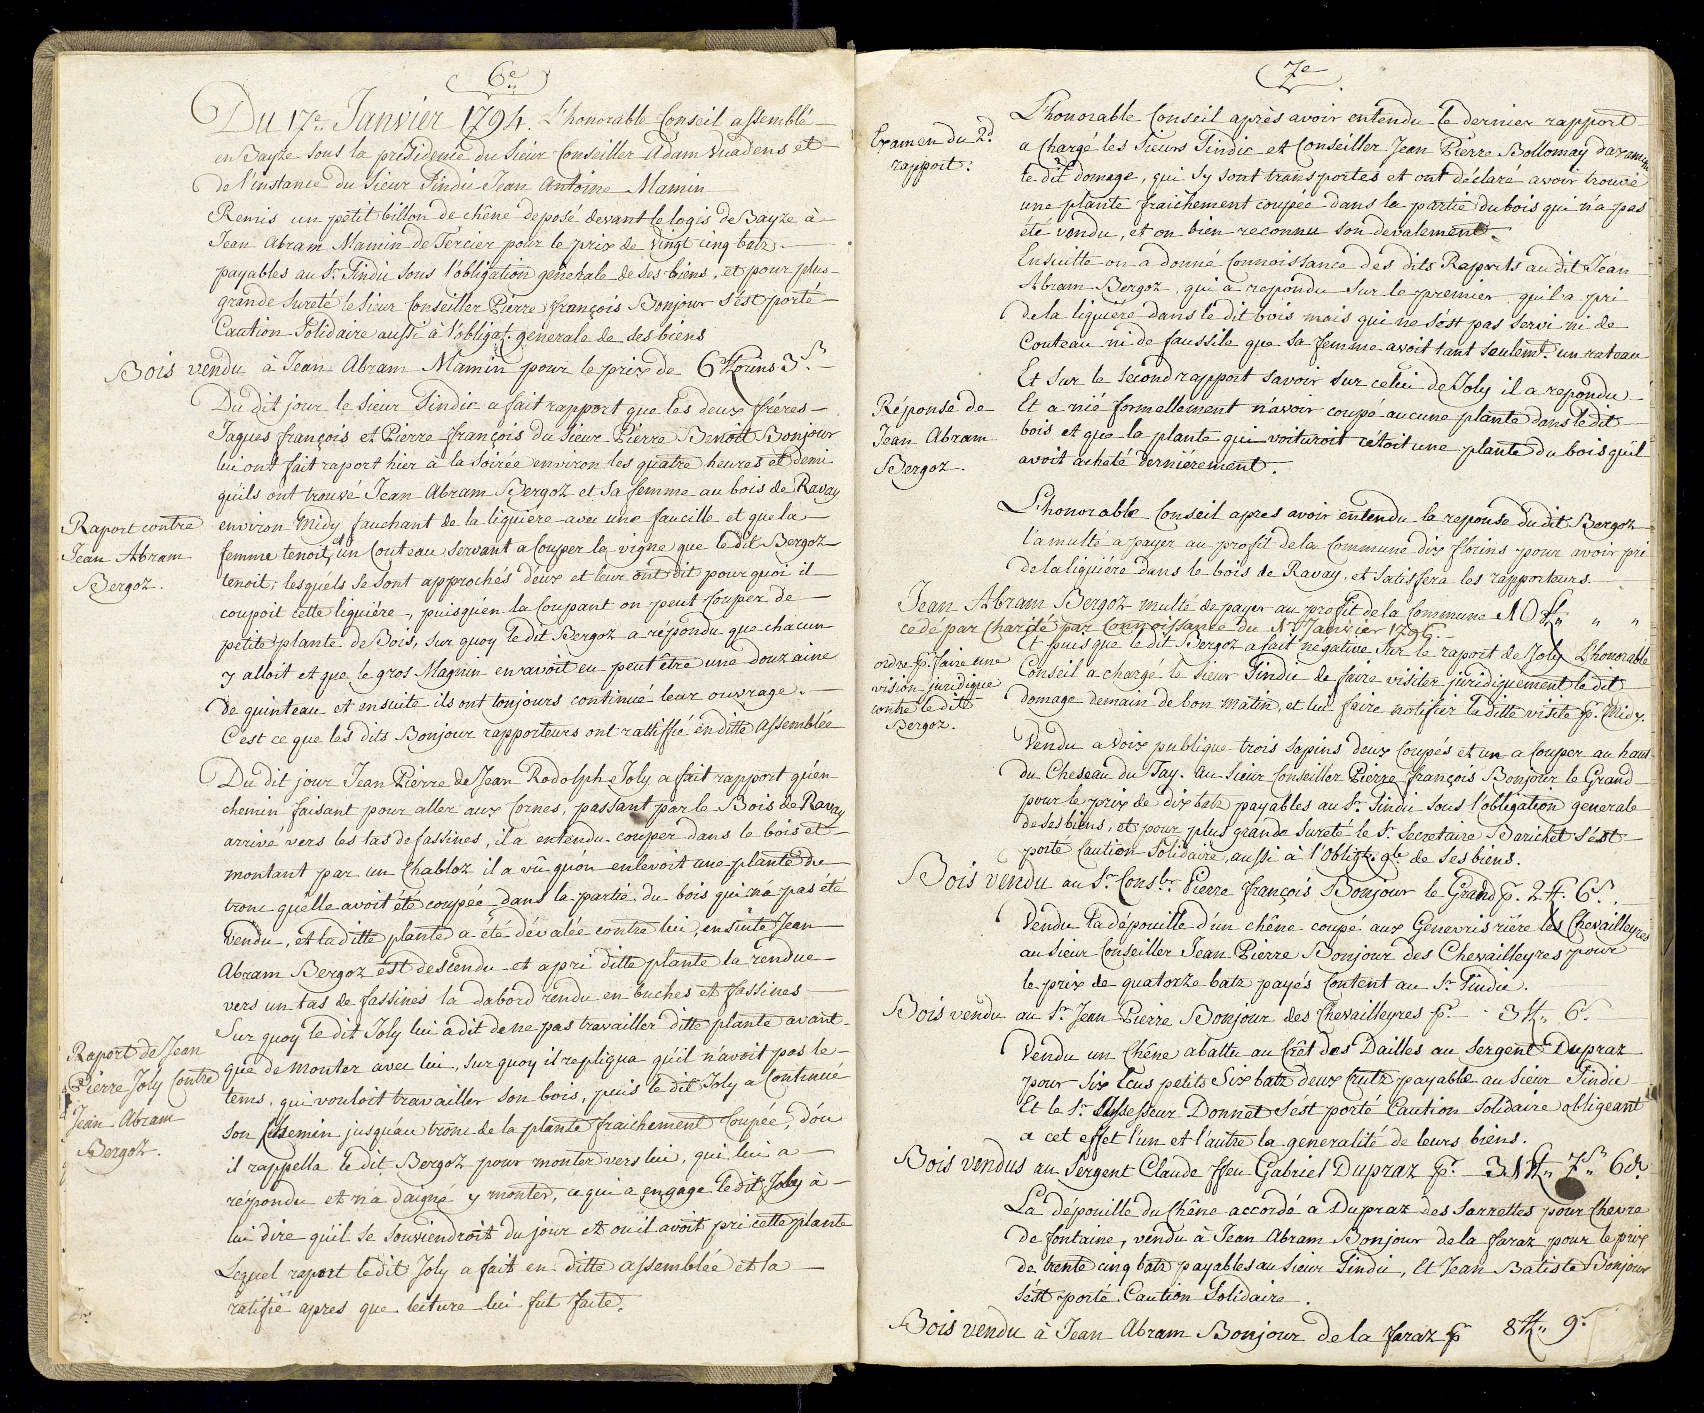 6e
Du 17e. Janvier 1794. L'honorable Conseil assemblé
en Bayze sous la présidence du Sieur Conseiller Adam Vuadens et
de l'instance du Sieur Sindic Jean Antoine Mamin
Remis un petit billon de chêne deposé devant le logis de Bayze à
Jean Abram Mamin de Tercier pour le prix de vingt cinq batz
payables au Sr. Sindic sous l'obligation générale de ses biens, et pour plus
grande sureté le Sieur Conseiller Pierre françois Bonjour s'est porté
Caution Solidaire aussi à l'obligat. generale de ses biens
Bois vendu à Jean Abram Mamin pour le prix de 6 florins 3 s.
Du dit jour le Sieur Sindic a fait rapport que les deux fréres
Jaques françois et Pierre françois du Sieur Pierre Benoit Bonjour
lui ont fait raport hier à la Soirée environ les quatre heures et demi
qu'ils ont trouvé Jean Abram Bergoz et sa femme au bois de Ravay
Raport contre
Jean Abram
Bergoz.
environ Midy fauchant de la liquiere avec une faucille et que la
femme tenoit, et un Couteau servant a Couper la vigne que le dit Bergoz
tenoit; lesquels se sont approchés d'eux et leur ont dit pourquoi il
coupoit cette liquiére, puisqu'en la Coupant on peut Couper de
petite plante de Bois, sur quoy le dit Bergoz a répondu que chacun
y alloit et que le gros Magnin en avoit eu peut être une douzaine
de quinteau et ensuite ils ont toujours continué leur ouvrage.
C'est ce que les dits Bonjour rapporteurs ont rattiffié en ditte assemblée
Du dit jour Jean Pierre de Jean Rodolph Joly a fait rapport qu'en
chemin faisant pour aller aux Cornes, passant par le Bois de Ravay
arrivé vers les tas de fassines, il a entendu couper dans le bois et
montant par un Chabloz il a vû qu'on enlevoit une plante du
tronc qu'elle avoit été coupée dans la partie du bois qui n'a pas été
vendu, et la ditte plante a été dévalée contre lui, ensuite Jean
Abram Bergoz est descendu et apri ditte plante la rendue
vers un tas de fassines la dabord rendu en buches et fassines
Sur quoy le dit Joly lui a dit de ne pas travailler ditte plante avant
Raport de Jean
Pierre Joly Contre
Jean Abram
Bergoz.
que de monter avec lui, sur quoy il repliqua qu'il n'avoit pas le
tems, qui vouloit travailler son bois, puis le dit Joly a Continué
son Chemin jusqu'au tronc de la plante fraichement Coupée, d'ou
il rappella le dit Bergoz pour monter vers lui, qui lui a
répondu et n'a daigné y monter, ce qui a engage le dit Joly à
lui dire qu'il se souviendroit du jour et ou il avoit pri cette plante
Lequel raport le dit Joly a fait en ditte assemblée et la
ratifié apres que lecture lui fut faite.
7e
L'honorable Conseil après avoir entendu le dernier rapport
Examen du 2d.
rapport.
a Chargé les Sieurs Sindic et Conseiller Jean Pierre Bollomay d'examiner
le dit domage, qui s'y sont transportes et ont déclaré avoir trouvé
une plante fraichement coupée dans la partie du bois qui n'a pas
été vendu, et on bien reconnu son devalement
Ensuitte on a donné Connoissance des dits Raports au dit Jean
Abram Bergoz, qui a repondu sur le premier, qu'il a pri
de la liquiére dans le dit bois mais qui ne s'est pas servi ni de
Couteau ni de faussile que sa femme avoit tant seulemt. un rateau
Et sur le second rapport savoir sur celui de Joly il a repondu
Réponse de
Jean Abram
Bergoz.
Et a nié formellement n'avoir coupé aucune plante dans le dit
bois et que la plante qui voituroit c'étoit une plante du bois qu'il
avoit acheté derniérement.
L'honorable Conseil apres avoir entendu la reponse du dit Bergoz
l'a multé a payer au profit de la Commune dix florins pour avoir pri
de la liquiére dans le bois de Ravay, et satisfera les rapporteurs.
Jean Abram Bergoz multé de payer au profit de la Commune 10 fl „ „ „
cedé par Charité par Connoissance du 1r. Janvier 1795.
Et puis que le dit Bergoz a fait négative sur le raport de Joly L'honorable
ordre pr. faire une
vision juridique
contre le dit
Bergoz.
Conseil a chargé le Sieur Sindic de faire visiter juridiquement le dit
domage demain de bon matin, et lui faire notifier la ditte visite pr. Midy.
Vendu a Voix publique trois sapins deux Coupés et un a Couper au haut
du Cheseau du Tay. au Sieur Conseiller Pierre françois Bonjour le Grand
pour le prix de dix batz payables au Sr. Sindic sous l'obligation generale
de ses biens, et pour plus grande sureté le Sr. Secretaire Barichet s'est
porte Caution Solidaire, aussi à l'oblig. gle de ses biens.
Bois vendu au Sr. Conslr. Pierre françois Bonjour le Grand pr. 2 fl. 6 s.
Vendu la dépouille d'un chêne coupé aux Genevris riére les Chevailleyres
au Sieur Conseiller Jean Pierre Bonjour des Chevailleyres pour
le prix de quatorze batz payés Content au Sr. Sindic.
Bois vendu au Sr. Jean Pierre Bonjour des Chevailleyres pr. 3 fl „ 6 s.
Vendu un Chêne abattu au Crêt des Dailles au Sergent Dupraz
pour six Ecus petits Six batz deux Crutz payable au Sieur Sindic
Et le Sr. Assesseur Donnet s'ést porté Caution Solidaire obligeant
a cet effet l'un et l'autre la generalité de leurs biens.
Bois vendus au Sergent Claude ffeu Gabriel Dupraz pr. 31 fl „ 7 s „ 6 d.
La dépouille du Chêne accordé a Dupraz des Sarrettes pour Chevre
de fontaine, vendu à Jean Abram Bonjour de la faraz pour le prix
de trente cinq batz payables au Sieur Sindic, Et Jean Batiste Bonjour
s'ést porté Caution Solidaire.
Bois vendu à Jean Abram Bonjour de la faraz pr 8 fl „ 9 s